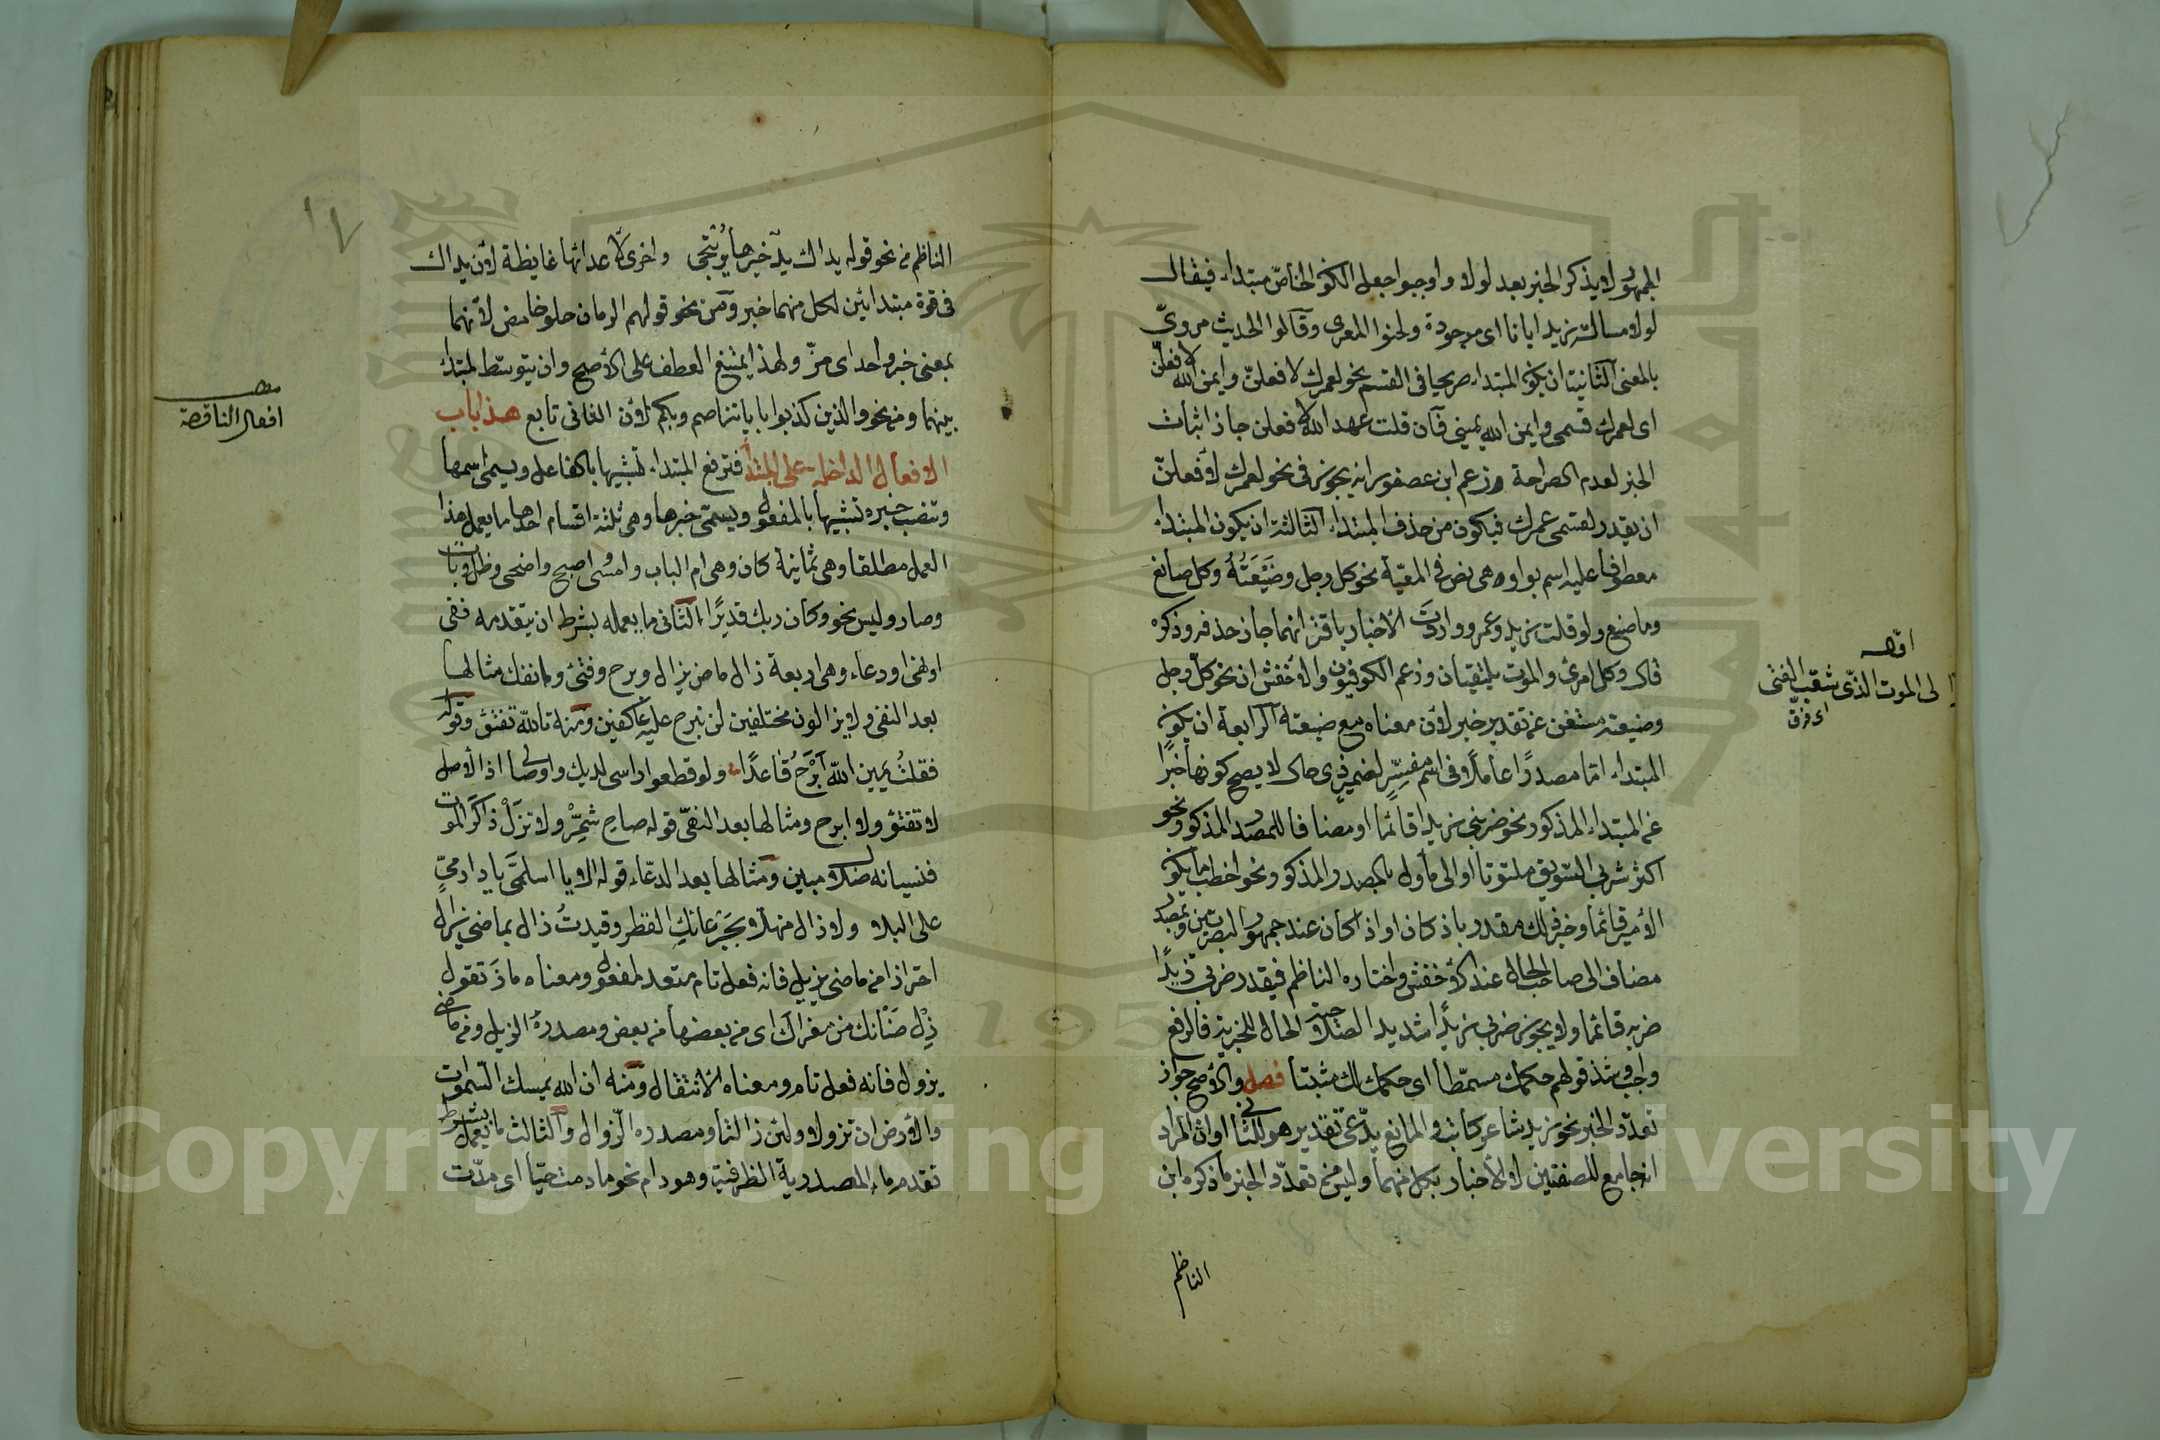 الجمهور لا يذكر الخبر بعد لولا واوجبوا جعل الكون الخاص مبتداء فيقال
لولا مسالمة زيد ايانا اى موجودة ولحنوا المعرى وقالوا الحديث مروىّ
بالمعنى الثانية ان يكون المبتداء صريحا فى القسم نحو لعمرك لافعلنّ وايمن الله لافعلنّ
اى لعمرك قسمى وايمن الله يمينى فان قلت عهد الله لافعلن جاز اثبات
الخبر لعدم الصراحة وزعم ابن عصفور انه يجوز فى نحو لعمرك لافعلنّ
ان يقدر لقسمى عمرك فيكون من حذف المبتداء الثالثة ان يكون المبتداء
معطوفا عليه اسم بواو هى نص فى المعيّة نحو كل رجل وضَيْعَتُهُ وكل صانع
وما صنع ولو قلت زيد وعمرو واردت الاخبار باقترانهما جاز حذفه وذكره
قال وكل امرئ والموت يلتقيان وزعم الكوفيون والاخفش ان نحو كلّ رجل
وضيعته مستغن عن تقدير خبر لان معناه مع ضيعته الرابعة ان يكون
المبتداء امّا مصدرًا عاملًا فى اسم مفسِّرٍ لضمير ذى حال لا يصح كونها خبرًا
عن المبتداء المذكور نحو ضربى زيدا قائما او مضافا للمصدر المذكور ونحو
اكثر شربى السّويق ملتوتا او الى مأول بالمصدر المذكور ونحو اخطب ما يكون
الامير قائما وخبر ذلك مقدر باذ كان او اذا كان عند جمهور البصريين وبمصدر
مضاف الى صاحب الحال عند الاخفش واختاره الناظم فيقدر ضربى زيدًا
ضربه قائما ولا يجوز ضربى زيدًا شديدا لصلاحية الحال للخبرية فالرفع
واجب وشذ قولهم حكمك مسمّطا اى حكمك لك مثبتا فصل والاصح جواز
تعدّد الخبر نحو زيد شاعر كاتب والمانع يدّعى تقدير هو للثانى او ان المراد
انه جامع للصفتين لا الاخبار بكل منهما وليس من تعدّد الخبر ما ذكره ابن
الناظم
افقه
الى الموت الذّى شعّب الفتى
اى فرّق
١٧
الناظم من نحو قوله يداك يدٌ خيرها يُرْتَجى واخرى لاعدائها غايظة لان يداك
فى قوة مبتدائين لكل منهما خبر ومن نحو قولهم الرمان حلو حامض لانهما
بمعنى خبر واحد اى مزّ ولهذا يمتنع العطف على الاصح وان يتوسّط المبتداء
بينهما ومن نحو والذين كذبوا باياتنا صم وبكم لان الثانى تابع هذا باب
الافعال الداخلة على المبتداء فترفع المبتداء تشبيها بالفاعل ويسمى اسمها
وتنصب خبره تشبيها بالمفعول ويسمّى خبرها وهى ثلثة اقسام احدها ما يعمل هذا
العمل مطلقا وهى ثمانية كان وهى ام الباب وامسى اصبح واضحى وظل وبات
وصار وليس نحو وكان ربك قديرًا الثانى ما يعمله بشرط ان يتقدمه نفى
او نهى او دعاء وهى اربعة زال ماضى يزال وبرح وفتئ وانفك مثالها
بعد النفى ولا يزالون مختلفين لن نبرح عليه عاكفين ومنه تالله تفتؤ وقوله
فقلتُ يمين اللّه اَبْرَحُ قاعدًا ولو قطعوا راسى لديك واوصالى اذ الاصل
لا تفتؤ ولا ابرح ومثالها بعد النهىّ قوله صاحِ شَمِّرْ ولا تزَلْ ذاكرَ الموت
فنسيانه ضلال مبين ومثالها بعد الدّعاء قوله الا يا اسلمى يا دارمىٍّ
على البلا ولا زال منهلّا بجَرْعائكِ القطر وقيدتُ زال بماضى يزال
احترازا من ماضى يزيل فانه فعل تام متعد لمفعول ومعناه مازَ تقول
زِلْ ضَأْنَك من مَعْزاك اى مز بعضها من بعض ومصدرهُ الزيل ومن ماضى
يزول فانه فعل تام ومعناه الانتقال ومنه ان الله يمسك السّموات
والارض ان تزولا ولئن زالتا ومصدره الزّوال والثالث ما يعمل بشرط
تقدم ماء المصدرية الظرفية وهو دام نحو ما دمت حيّا اى مدّت
مطلب
افعال الناقصة
Copyright © King Saud University
جامعة الملك سعود
195